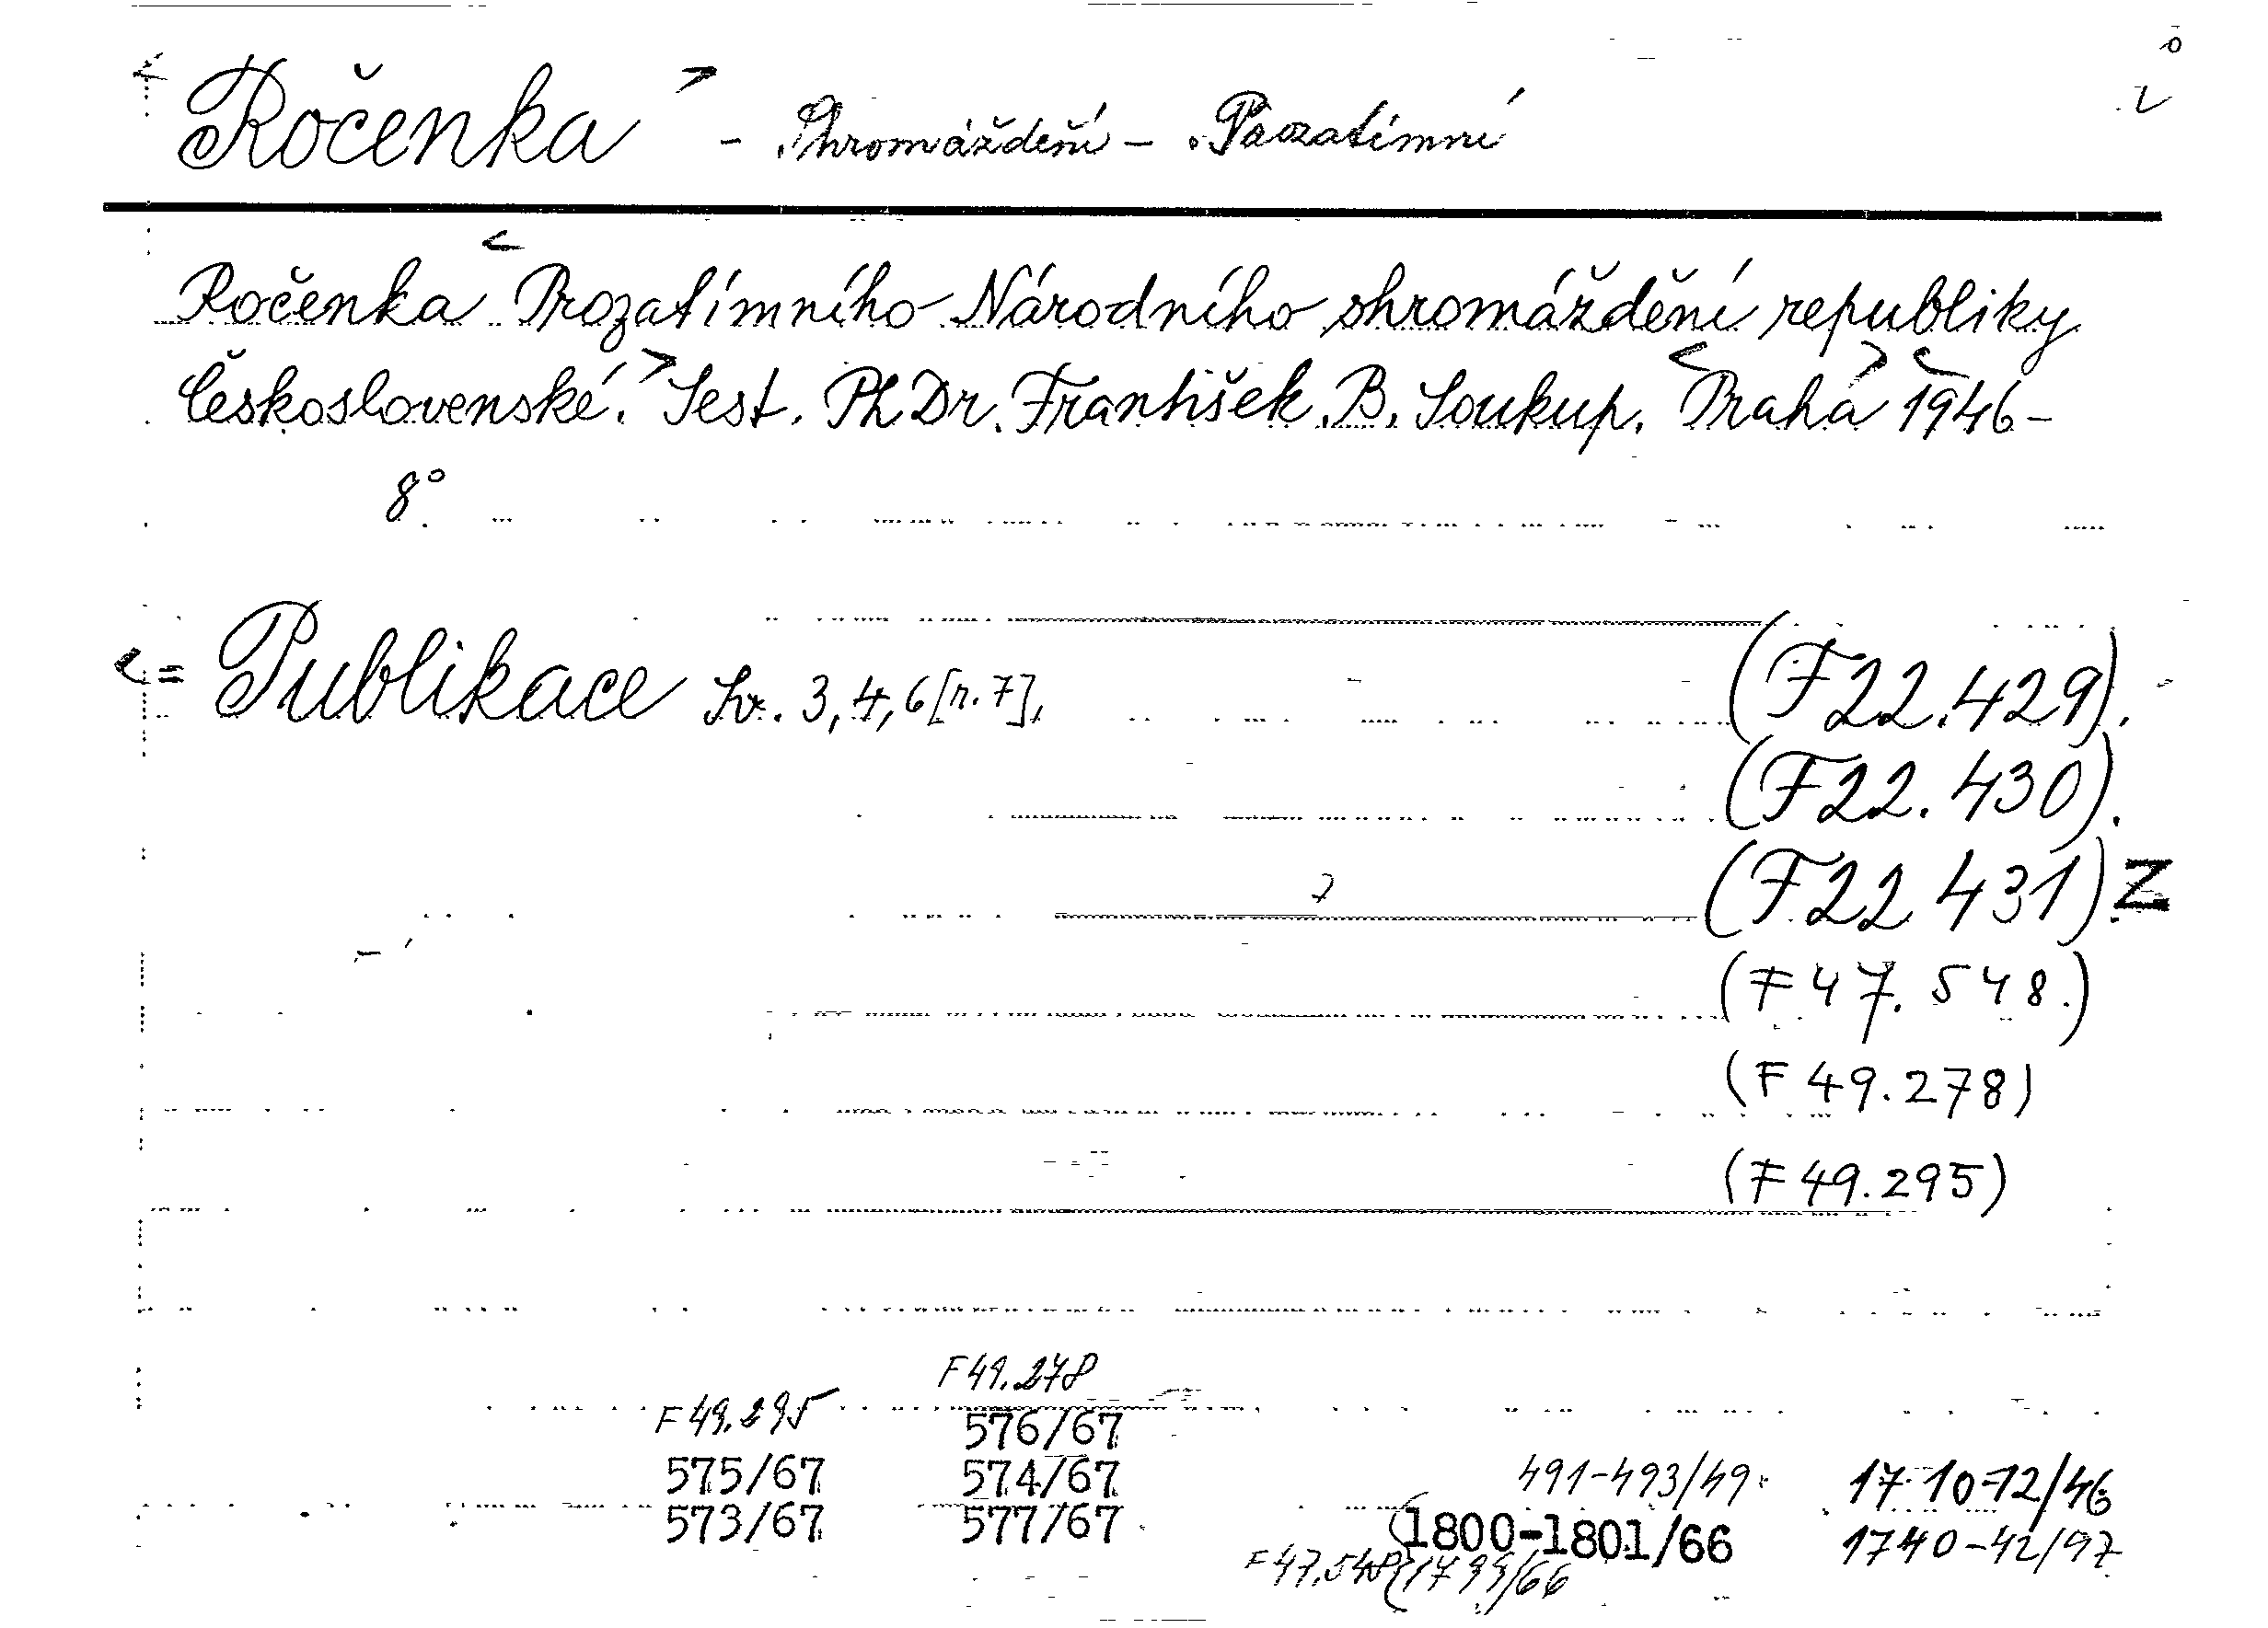 Ročenka - Shromáždění - Prozatímní
Ročenka Prozatímního Národního shromáždění republiky
Československé. Sest. PhDr. František B. Soukup. Praha 1946-
8°
= Publikace Sv. 3, 4, 6 [n. 7], (F22.429).
(F22.430).
(F22 431) Z
(F 47.548.)
(F 49.278)
(F 49.295)
F 49.278
F 49.295 576/67
575/67 574/67 491-493/49. 1710-12/46
573/67 577/67 1800-1801/66 1740-42/97
F 47.548 1799/66